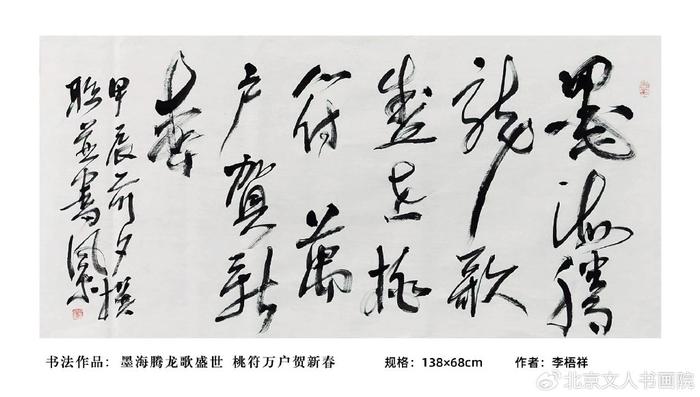 墨海騰
龍歌
盛世桃
符萬
户賀新
春
甲辰前夕撰
聯並書
书法作品：墨海腾龙歌盛世 桃符万户贺新春
规格：138×68cm
作者：李梧祥
@北京文人书画院